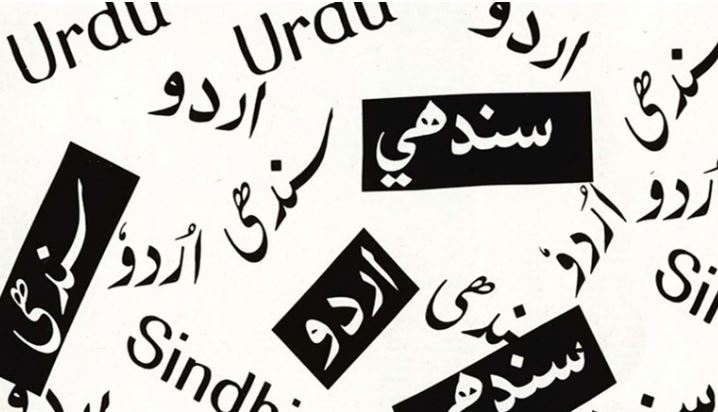 Urdu
Urdu
اردو
سندھی
اردو
سنڌي
سندھی
اُردو
اُردو
سندھی
اُردو
اردو
سندھی
Sindhi